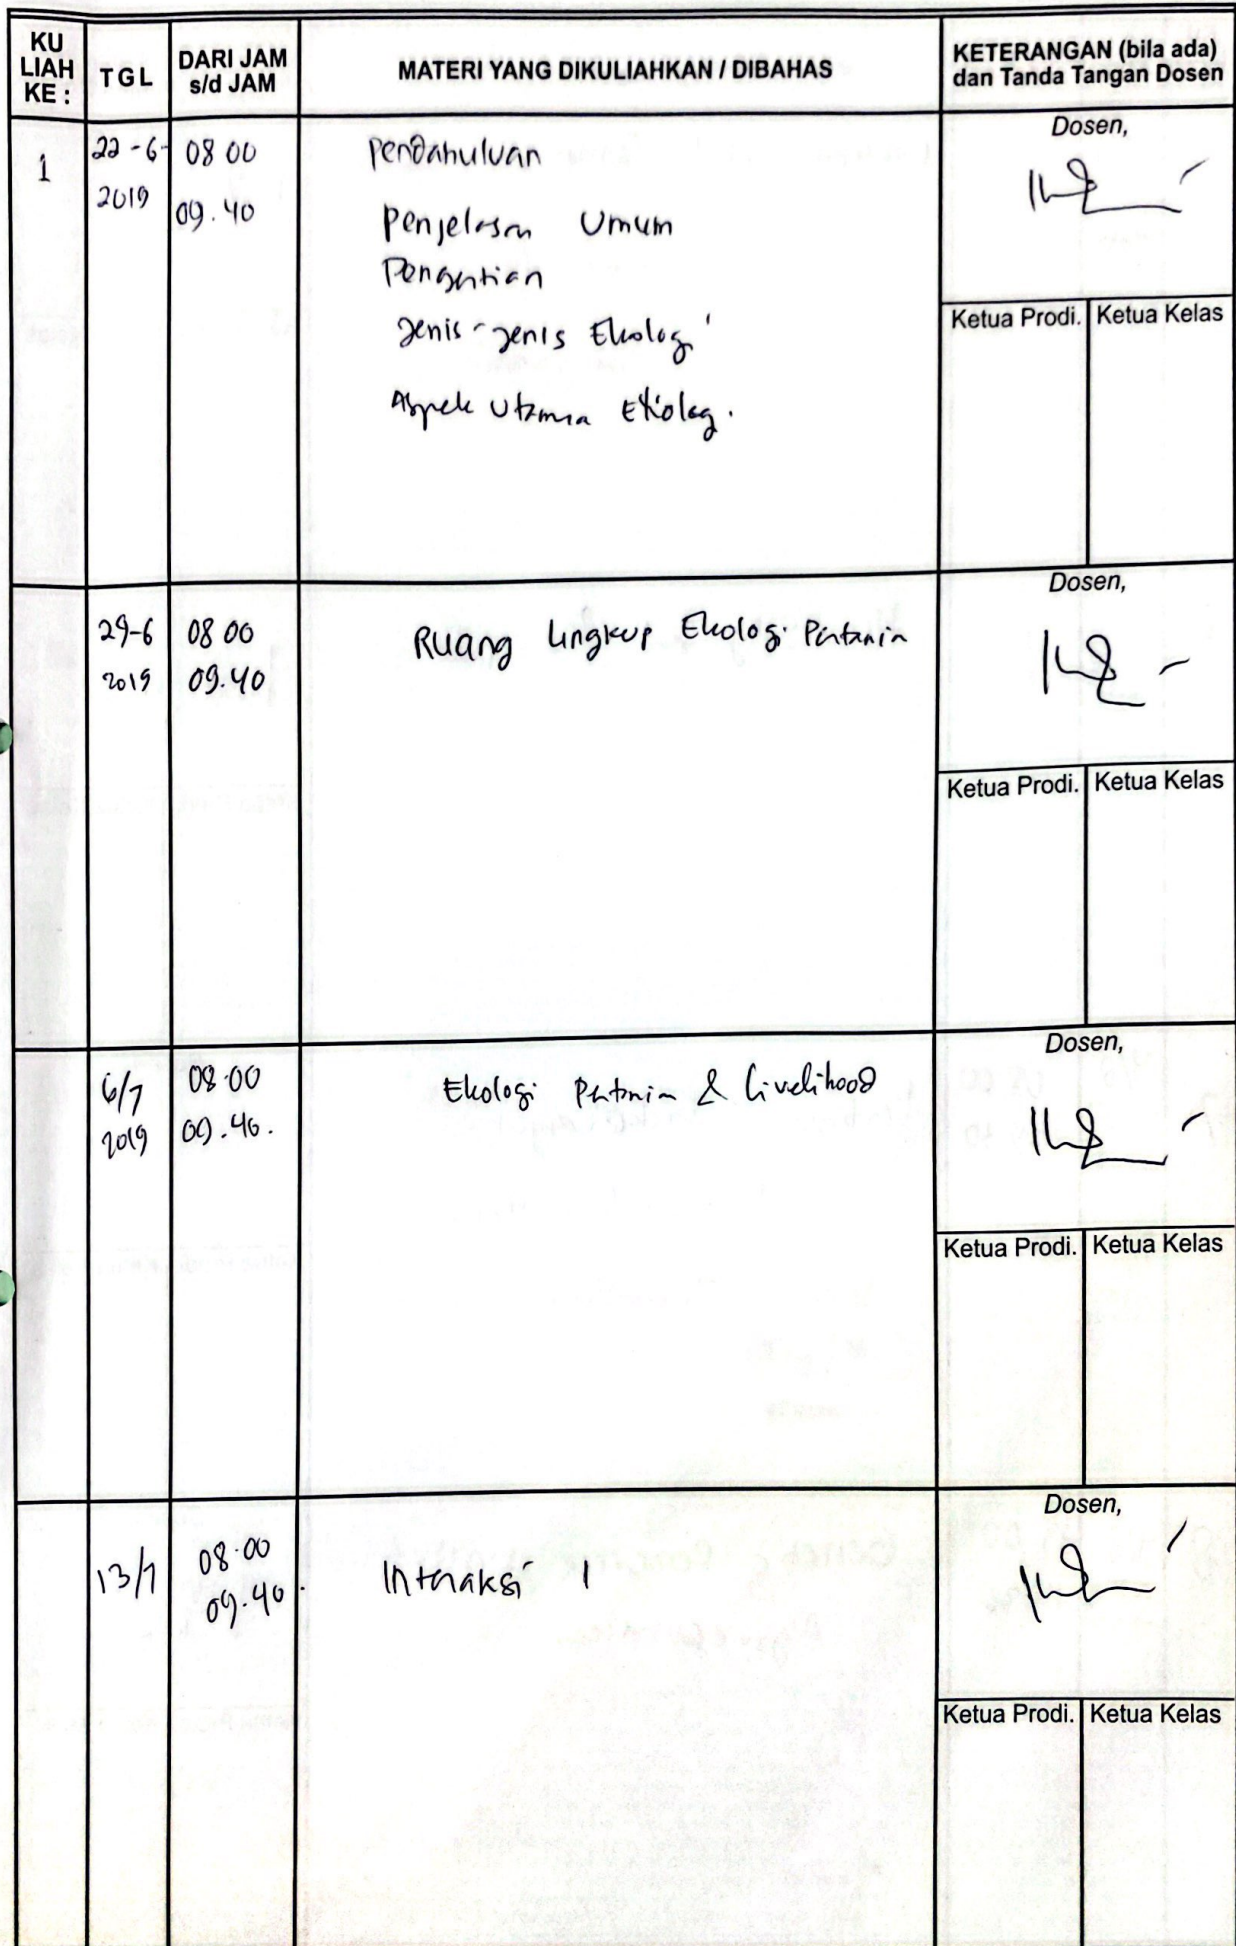 KU LIAH KE :
TGL
DARI JAM s/d JAM
MATERI YANG DIKULIAHKAN / DIBAHAS
KETERANGAN (bila ada) dan Tanda Tangan Dosen
1
22-6-
2019
08 00
09.40
Pendahuluan
Penjelasan Umum
Pengertian
Jenis-jenis Ekologi
Aspek Utama Ekologi.
Dosen,
Ketua Prodi.
Ketua Kelas
29-6
2019
08 00
09.40
Ruang Lingkup Ekologi Pertanian
Dosen,
Ketua Prodi.
Ketua Kelas
6/7
2019
08.00
09.40.
Ekologi Pertanian & Livelihood
Dosen,
Ketua Prodi.
Ketua Kelas
13/7
08.00
09.40.
Interaksi 1
Dosen,
Ketua Prodi.
Ketua Kelas